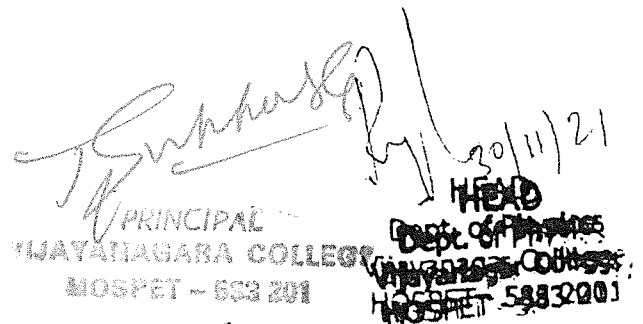 30/11/21
PRINCIPAL
VIJAYANAGARA COLLEGE
HOSPET - 583 201
HEAD
Dept. of Physics
Vijayanagar College
HOSPET 583201